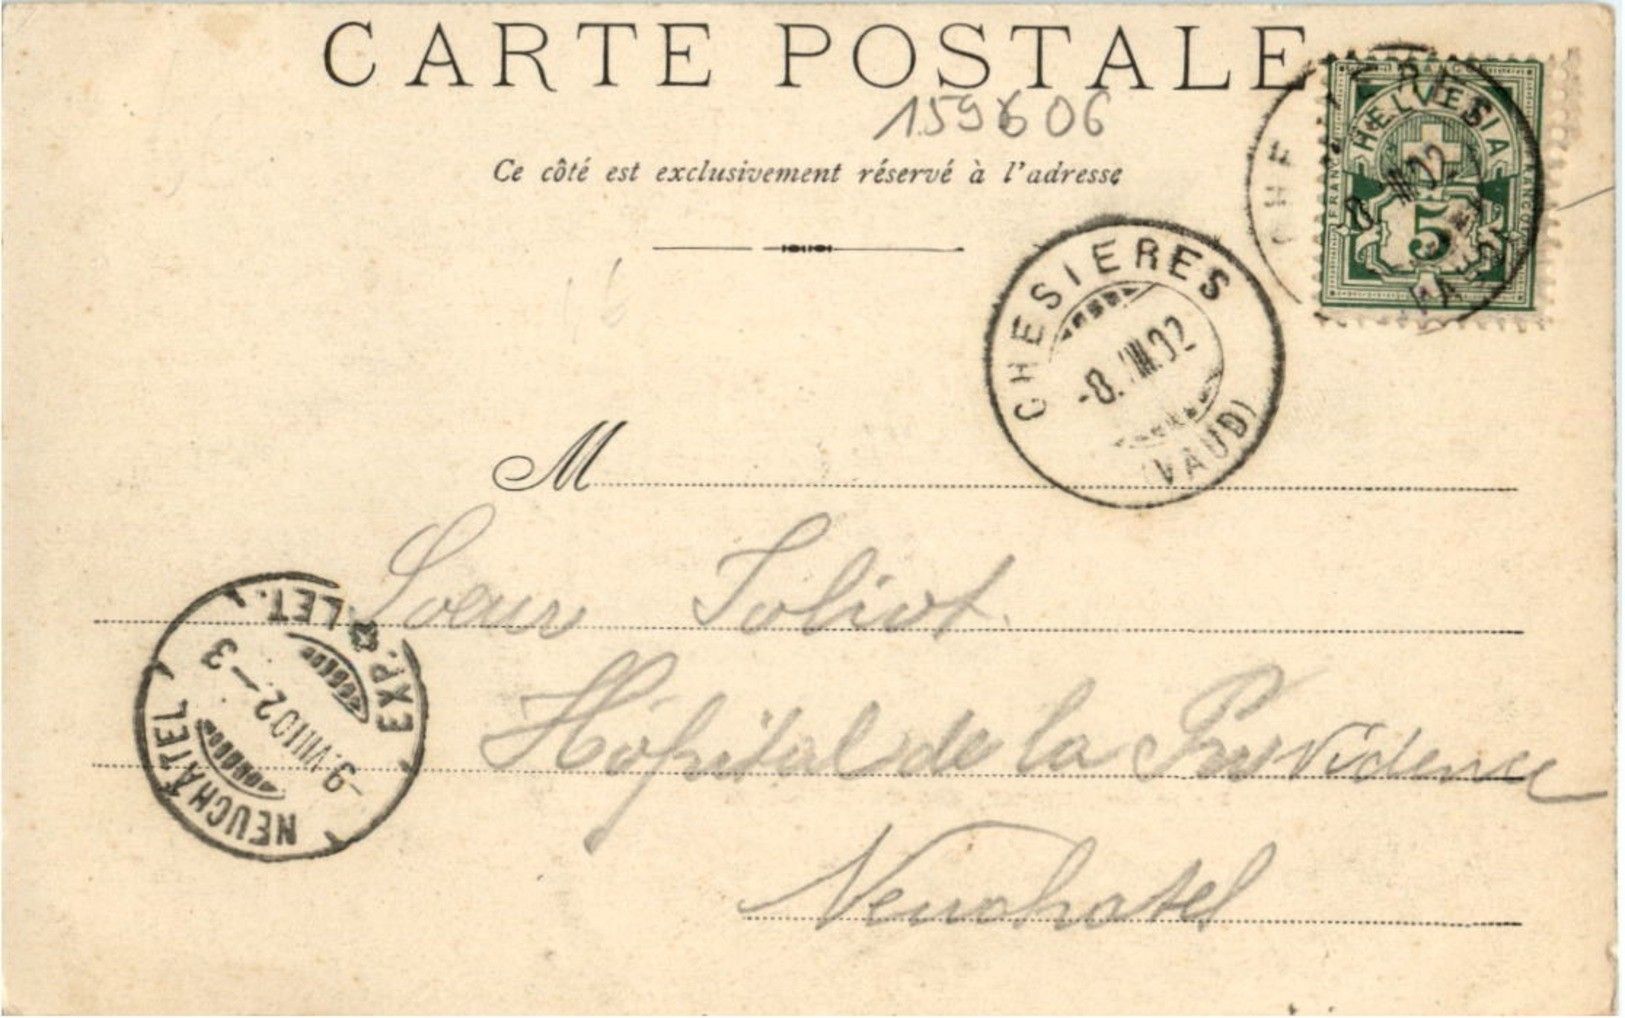 CARTE POSTALE
159606
Ce côté est exclusivement réservé à l'adresse
FRANCO
HELVETIA
FRANCO
FRANCO
5
CHESIERES
-8.VIII.02
(VAUD)
M
Soeur Joliot.
Hôpital de la Providence
Neuchatel
NEUCHÂTEL
EXP. LET.
-9.VIII02-3